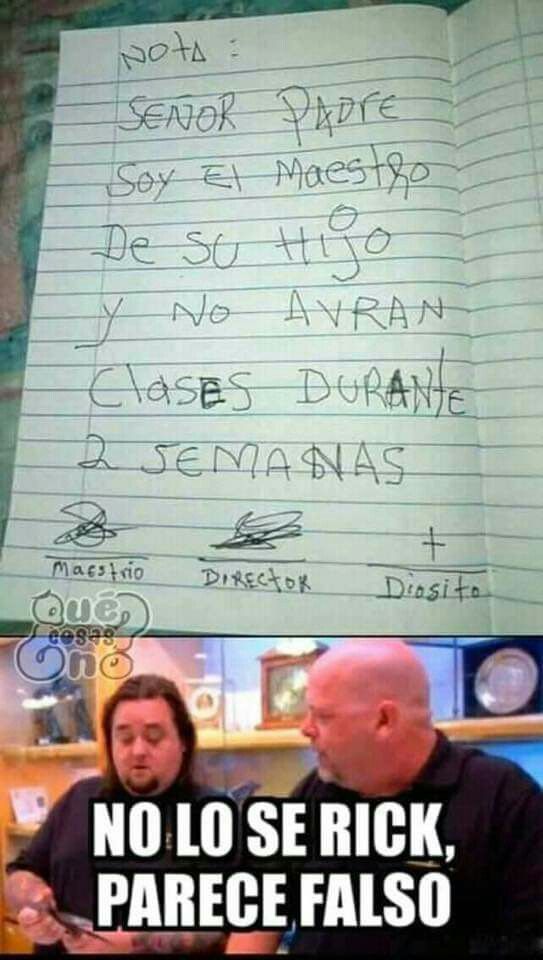 NOTA :
SEÑOR PADRE
Soy El Maestro
De SU Hijo
y No AVRAN
ClaSES DURANTE
2 SEMANAS
Maestrio DIRECTOR Diosito
Qué
cosas
no
NO LO SE RICK,
PARECE FALSO